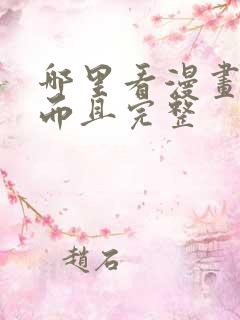 哪里看漫畫
而且完整
趙石